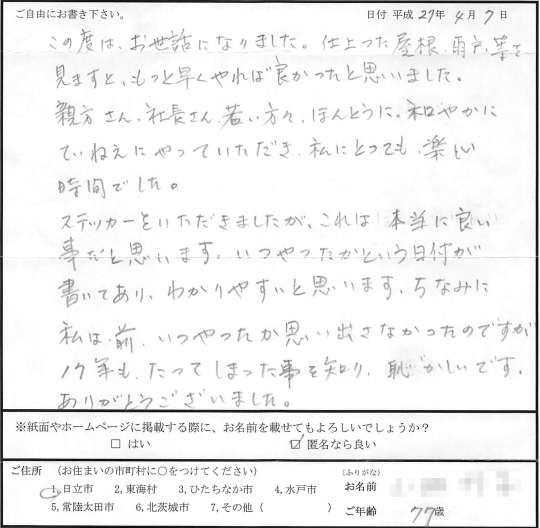 ご自由にお書き下さい。 日付 平成 27年 4月 7日
この度は、お世話になりました。仕上った屋根、雨戸、等を
見ますと、もっと早くやれば良かったと思いました。
親方さん、社長さん、若い方々、ほんとうに、和やかに
ていねえにやっていただき、私にとっても、楽しい
時間でした。
ステッカーをいただきましたが、これは本当に良い
事だと思います。いつやったかという日付が
書いてあり、わかりやすいと思います。ちなみに
私は、前、いつやったか思い出さなかったのですが
17年も、たってしまった事を知り、恥ずかしいです。
ありがとうございました。
※紙面やホームページに掲載する際に、お名前を載せてもよろしいでしょうか?
□ はい ☑ 匿名なら良い
ご住所 (お住まいの市町村に○をつけてください) (ふりがな)
1,日立市 2,東海村 3,ひたちなか市 4,水戸市 お名前
5,常陸太田市 6,北茨城市 7,その他( ) ご年齢 77歳